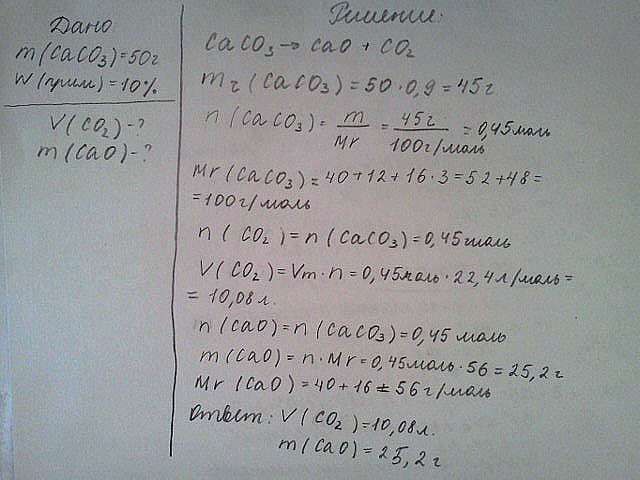 Дано
m(CaCO₃)=50г
W(прим)=10%
V(CO₂)-?
m(CaO)-?
Решение:
CaCO₃→CaO+CO₂
mч(CaCO₃)=50·0,9=45г
n(CaCO₃)=m/Mr=45г/100г/моль=0,45моль
Mr(CaCO₃)=40+12+16·3=52+48=
=100г/моль
n(CO₂)=n(CaCO₃)=0,45моль
V(CO₂)=Vm·n=0,45моль·22,4л/моль=
=10,08л.
n(CaO)=n(CaCO₃)=0,45моль
m(CaO)=n·Mr=0,45моль·56=25,2г
Mr(CaO)=40+16=56г/моль
Ответ: V(CO₂)=10,08л.
m(CaO)=25,2г